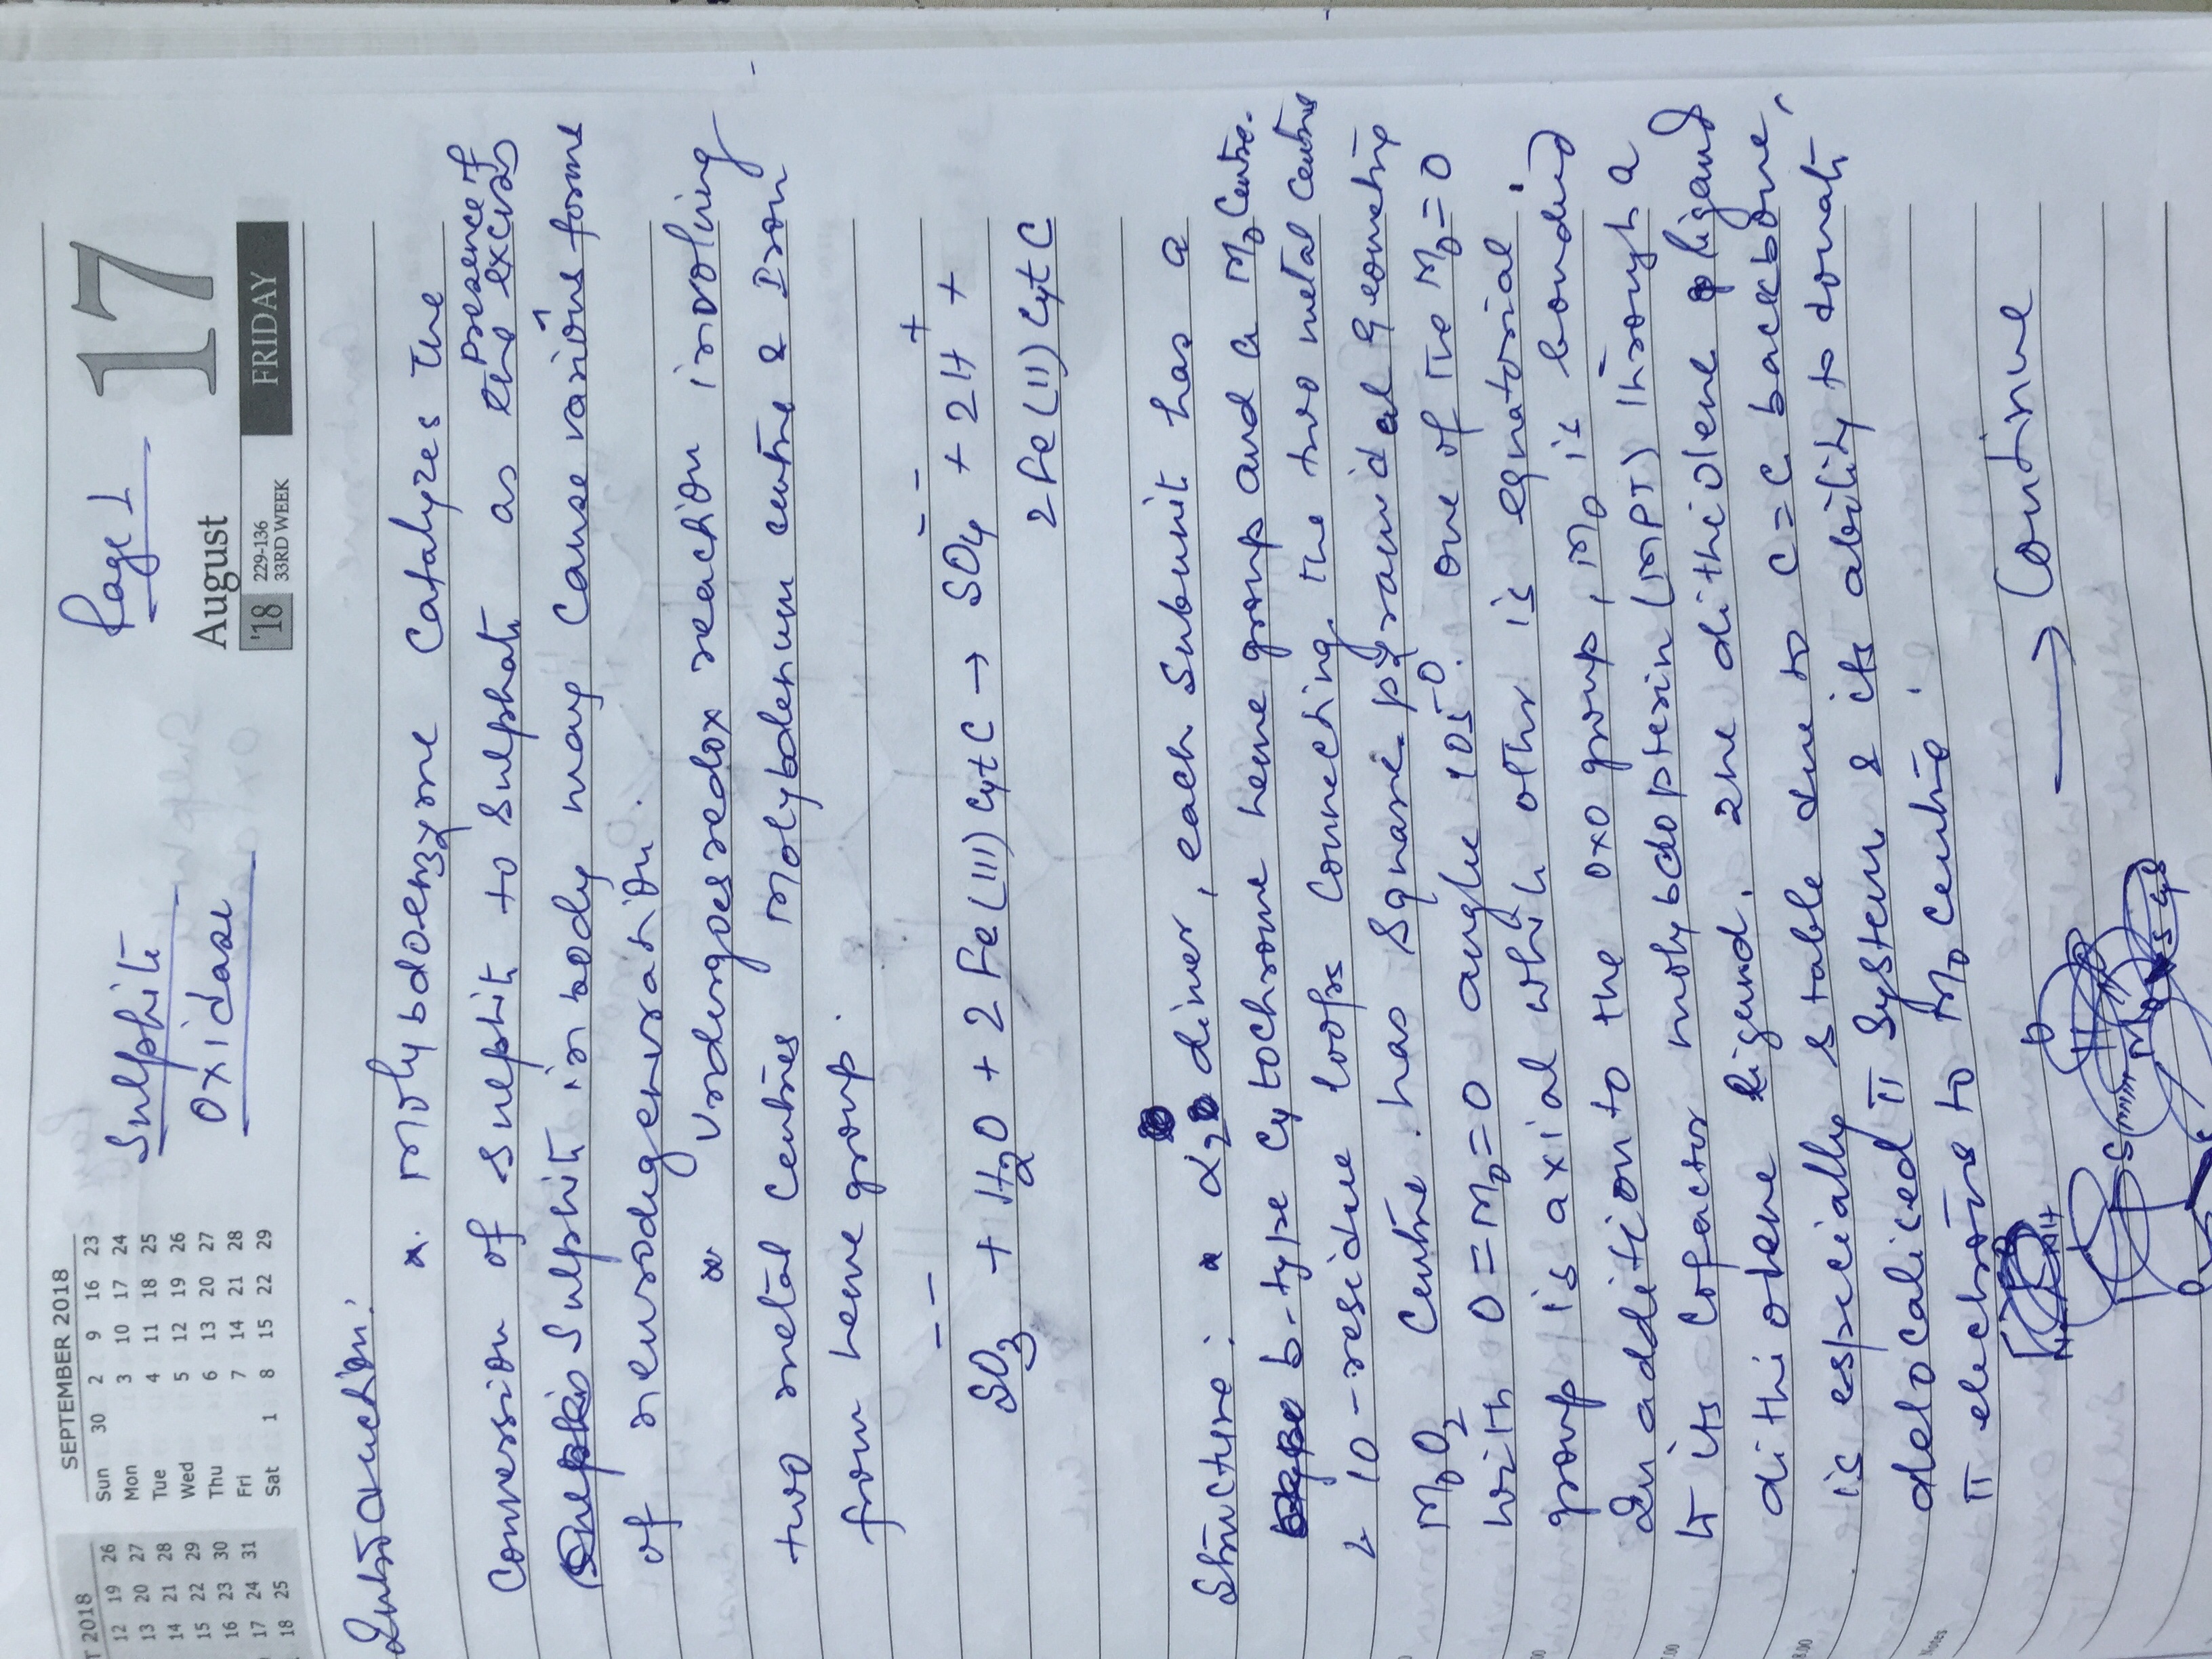 SEPTEMBER 2018
Sun 30 2 9 16 23
Mon 3 10 17 24
Tue 4 11 18 25
Wed 5 12 19 26
Thu 6 13 20 27
Fri 7 14 21 28
Sat 1 8 15 22 29
T 2018
12 19 26
13 20 27
14 21 28
15 22 29
16 23 30
17 24 31
18 25
Sulphite
Oxidase
Page 1
August
'18
229-136
33RD WEEK
17
FRIDAY
Introduction:
x. Molybdoenzyme Catalyzes the
Conversion of sulphite to sulphate as the excess
presence of
Sulphite in body may cause various forms
of neurodegeneration.
x Undergoes redox reaction involving
two metal centres Molybdenum centre & Iron
from heme group.
SO3-- + H2O + 2 Fe(III) Cyt C → SO4-- + 2H+ +
2 Fe(II) Cyt C
Structure: x α2 dimer, each Subunit has a
b-type Cytochrome heme group and a Mo Centre.
10-residue loops connecting the two metal centres
MoO2 Centre has Square pyramidal Geometry
with O=Mo=O angle 105°. one of the Mo=O
group is axial which other is equatorial.
In addition to the oxo group, Mo is bonded
to its cofactor molybdopterin (MPT) through a
dithiolene ligand. The dithiolene ligand
is especially stable due to C=C backbone,
delocalised π System & its ability to donate
π electrons to Mo centre.
→ Continue
Notes